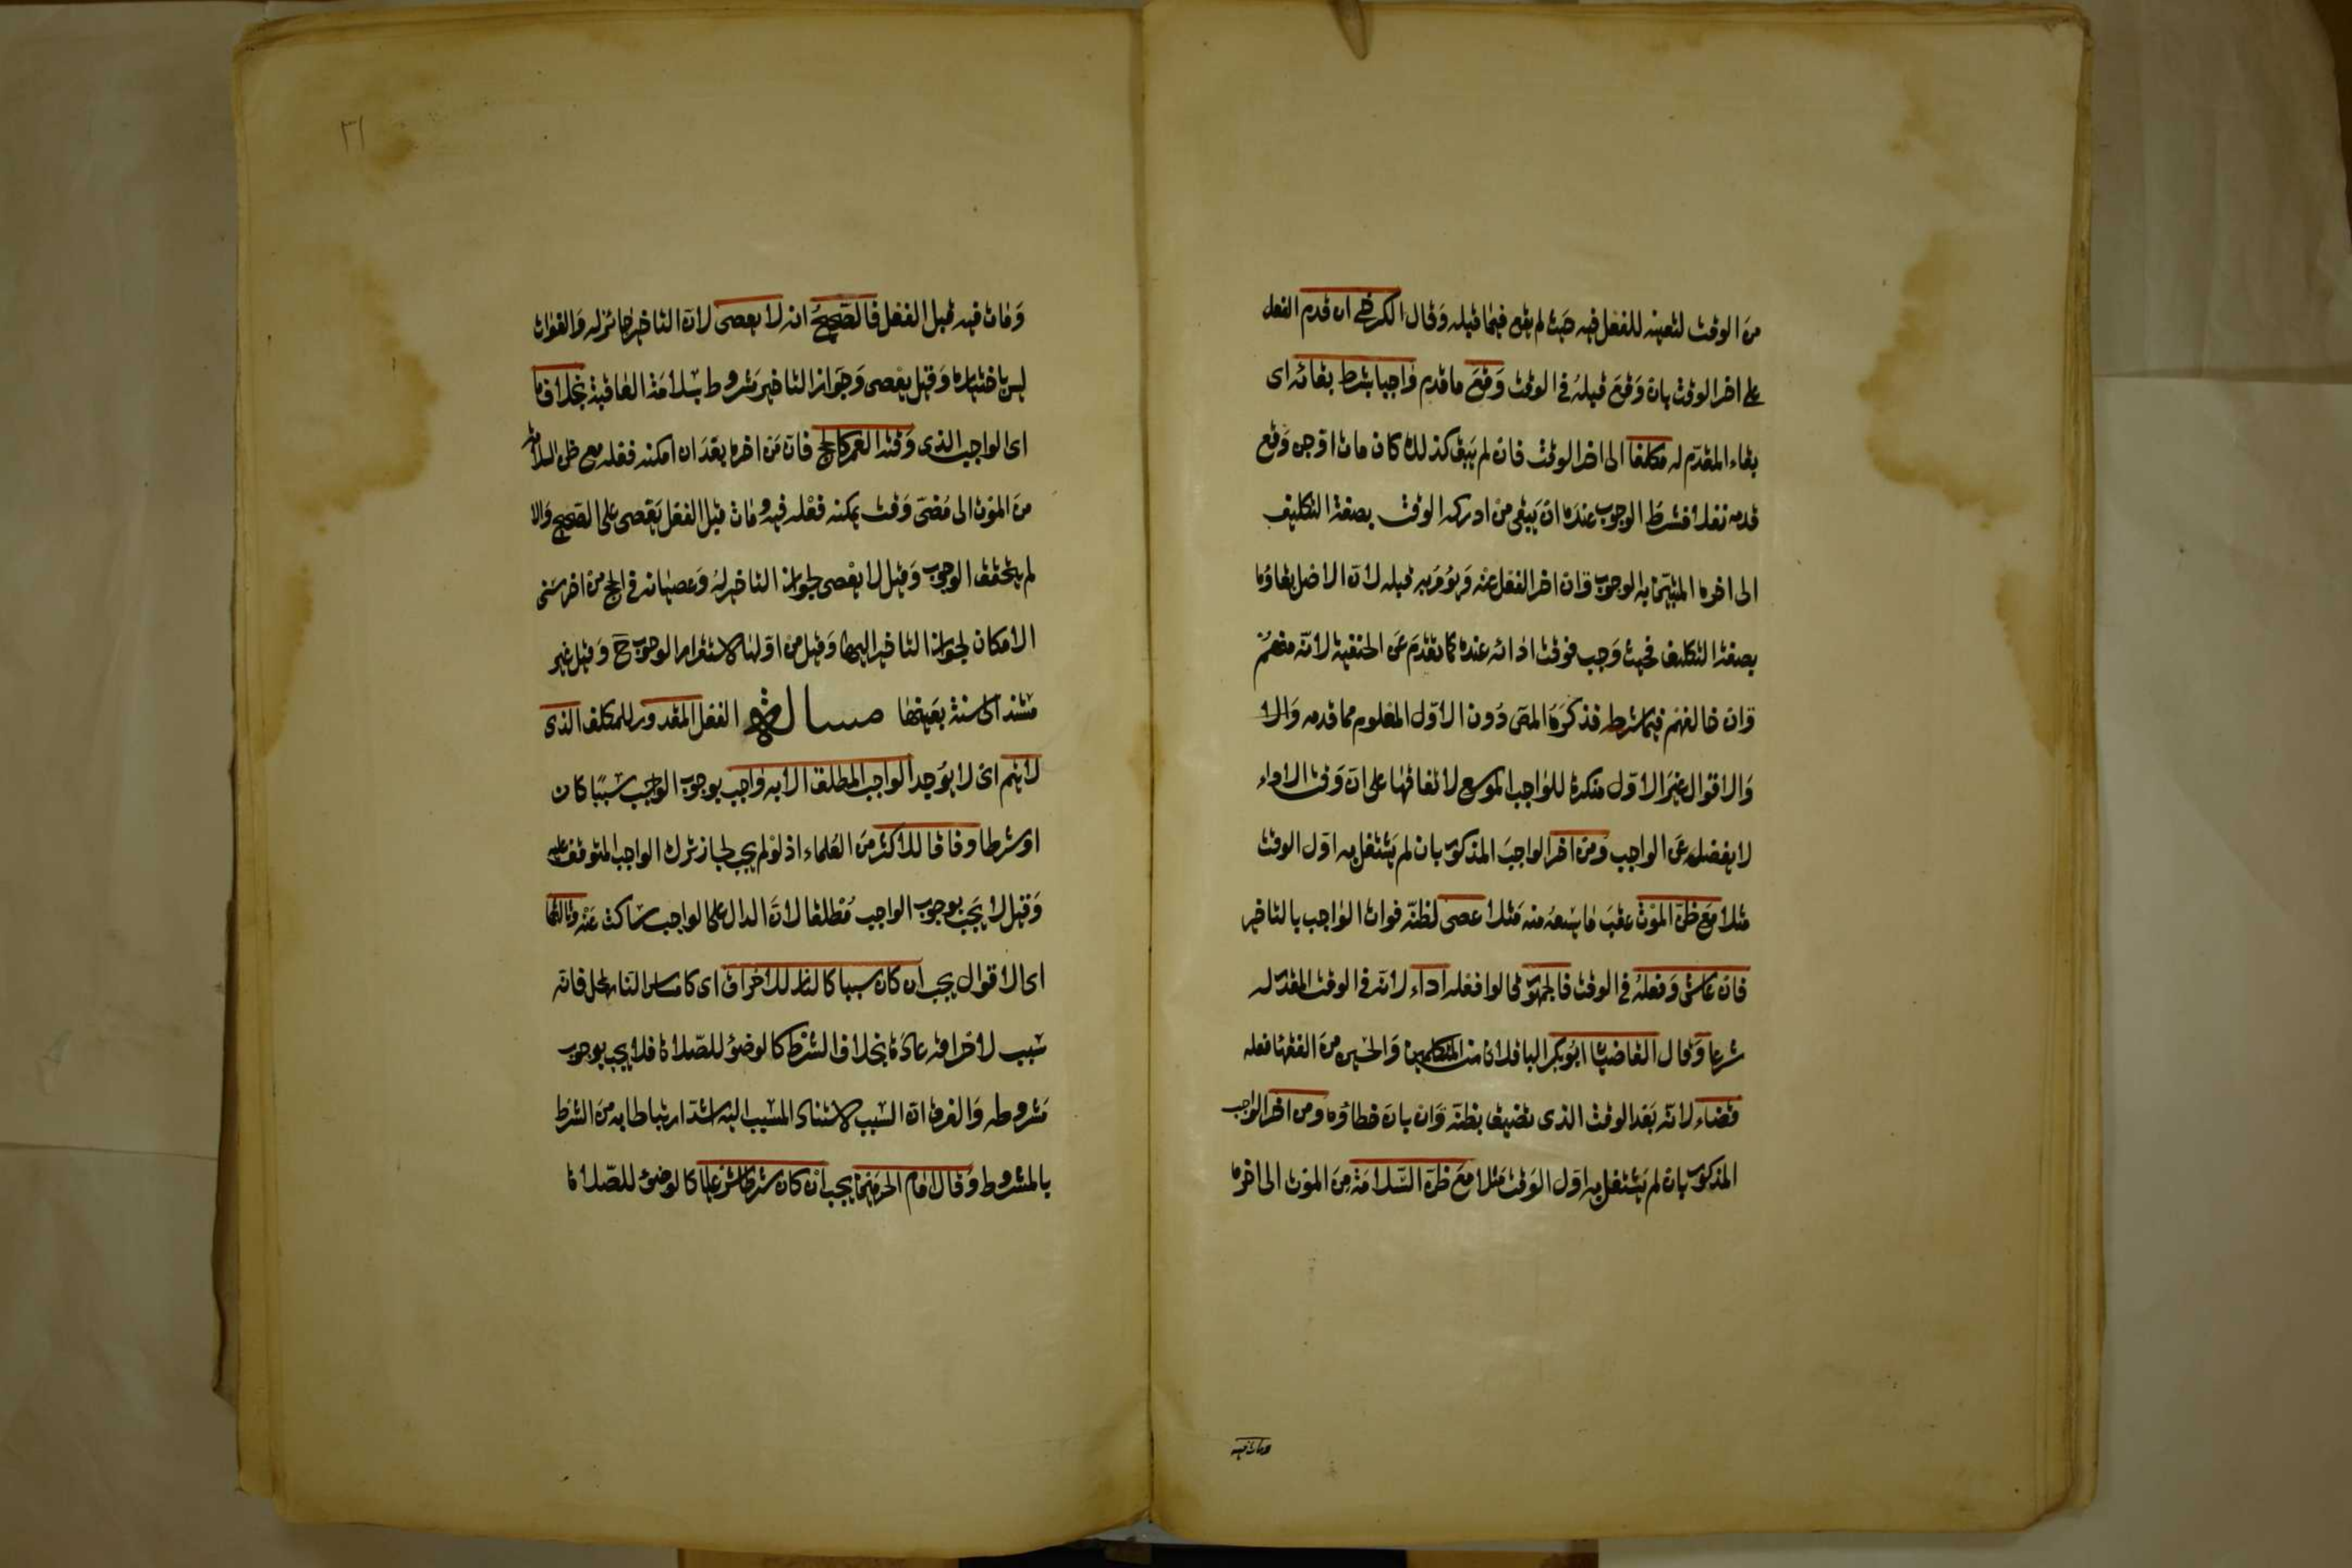 من الوقت لتعينه للفعل فيه حيث لم يقع فيما قبله وقال الكرخى ان قدم الفعل
على اخر الوقت بان وقع قبله فى الوقت وقع ما قدم واجبا بشرط بقائه اى
بقاء المقدم له مكلفا الى اخر الوقت فان لم يبق كذلك كان مات او جن وقع
قدمه نفلا فشرط الوجوب عنده ان يبقى من ادركه الوقت بصفة التكليف
الى اخره المتبين به الوجوب وان اخر الفعل عنه ويؤمر به قبله لان الاصل بقاؤه
بصفة التكليف فحيث وجب فوقت ادائه عنده كما تقدم عن الحنفية لانه منهم
وان خالفهم فيما شرطه فذكره المص دون الاول المعلوم مما قدمه والا
والاقوال غير الاول منكرة للواجب الموسع لاتفاقها على ان وقت الاداء
لا يفضل عن الواجب ومن اخر الواجب المذكور بان لم يشتغل به اول الوقت
مثلا مع ظن الموت عقب ما يسعه منه مثلا عصى لظنه فوات الواجب بالتاخير
فان عاش وفعله فى الوقت فالجمهور قالوا فعله اداء لانه فى الوقت المقدر له
شرعا وقال القاضيان ابو بكر الباقلانى من المتكلمين والحسين من الفقها فعله
قضاء لانه بعد الوقت الذى تضيق بظنه وان بان خطاؤه ومن اخر الواجب
المذكور بان لم يشتغل به اول الوقت مثلا مع ظن السلامة من الموت الى اخره
ومات فيه
٣١
ومات فيه قبل الفعل فالصحيح انه لا يعصى لان التاخير جائز له والفوات
ليس باختياره وقيل يعصى وجواز التاخير مشروط بسلامة العاقبة بخلاف ما
اى الواجب الذى وقته العمر كالحج فان من اخره بعد ان امكنه فعله مع ظن السلامة
من الموت الى مضى وقت يمكنه فعله فيه ومات قبل الفعل يعصى على الصحيح والا
لم يتحقق الوجوب وقيل لا يعصى لجواز التاخير له وعصيانه فى الحج من اخر سنى
الامكان لجواز التاخير اليها وقيل من اولها لاستقرار الوجوب ح وقيل غير
مستند الى سنة بعينها مسالة الفعل المقدور للمكلف الذى
لا يتم اى لا يوجد الواجب المطلق الا به واجب بوجوب الواجب سببا كان
او شرطا وفاقا للاكثر من العلماء اذ لو لم يجب لجاز ترك الواجب المتوقف عليه
وقيل لا يجب بوجوب الواجب مطلقا لان الدال على الواجب ساكت عنه وثالثها
اى الاقوال يجب ان كان سببا كالنار للاحراق اى كامساس النار لمحل فانه
سبب لاحراقه عادة بخلاف الشرط كالوضؤ للصلاة فلا يجب بوجوب
مشروطه والفرق ان السبب لاستناد المسبب اليه اشد ارتباطا به من الشرط
بالمشروط وقال امام الحرمين يجب ان كان شرطا شرعيا كالوضؤ للصلاة